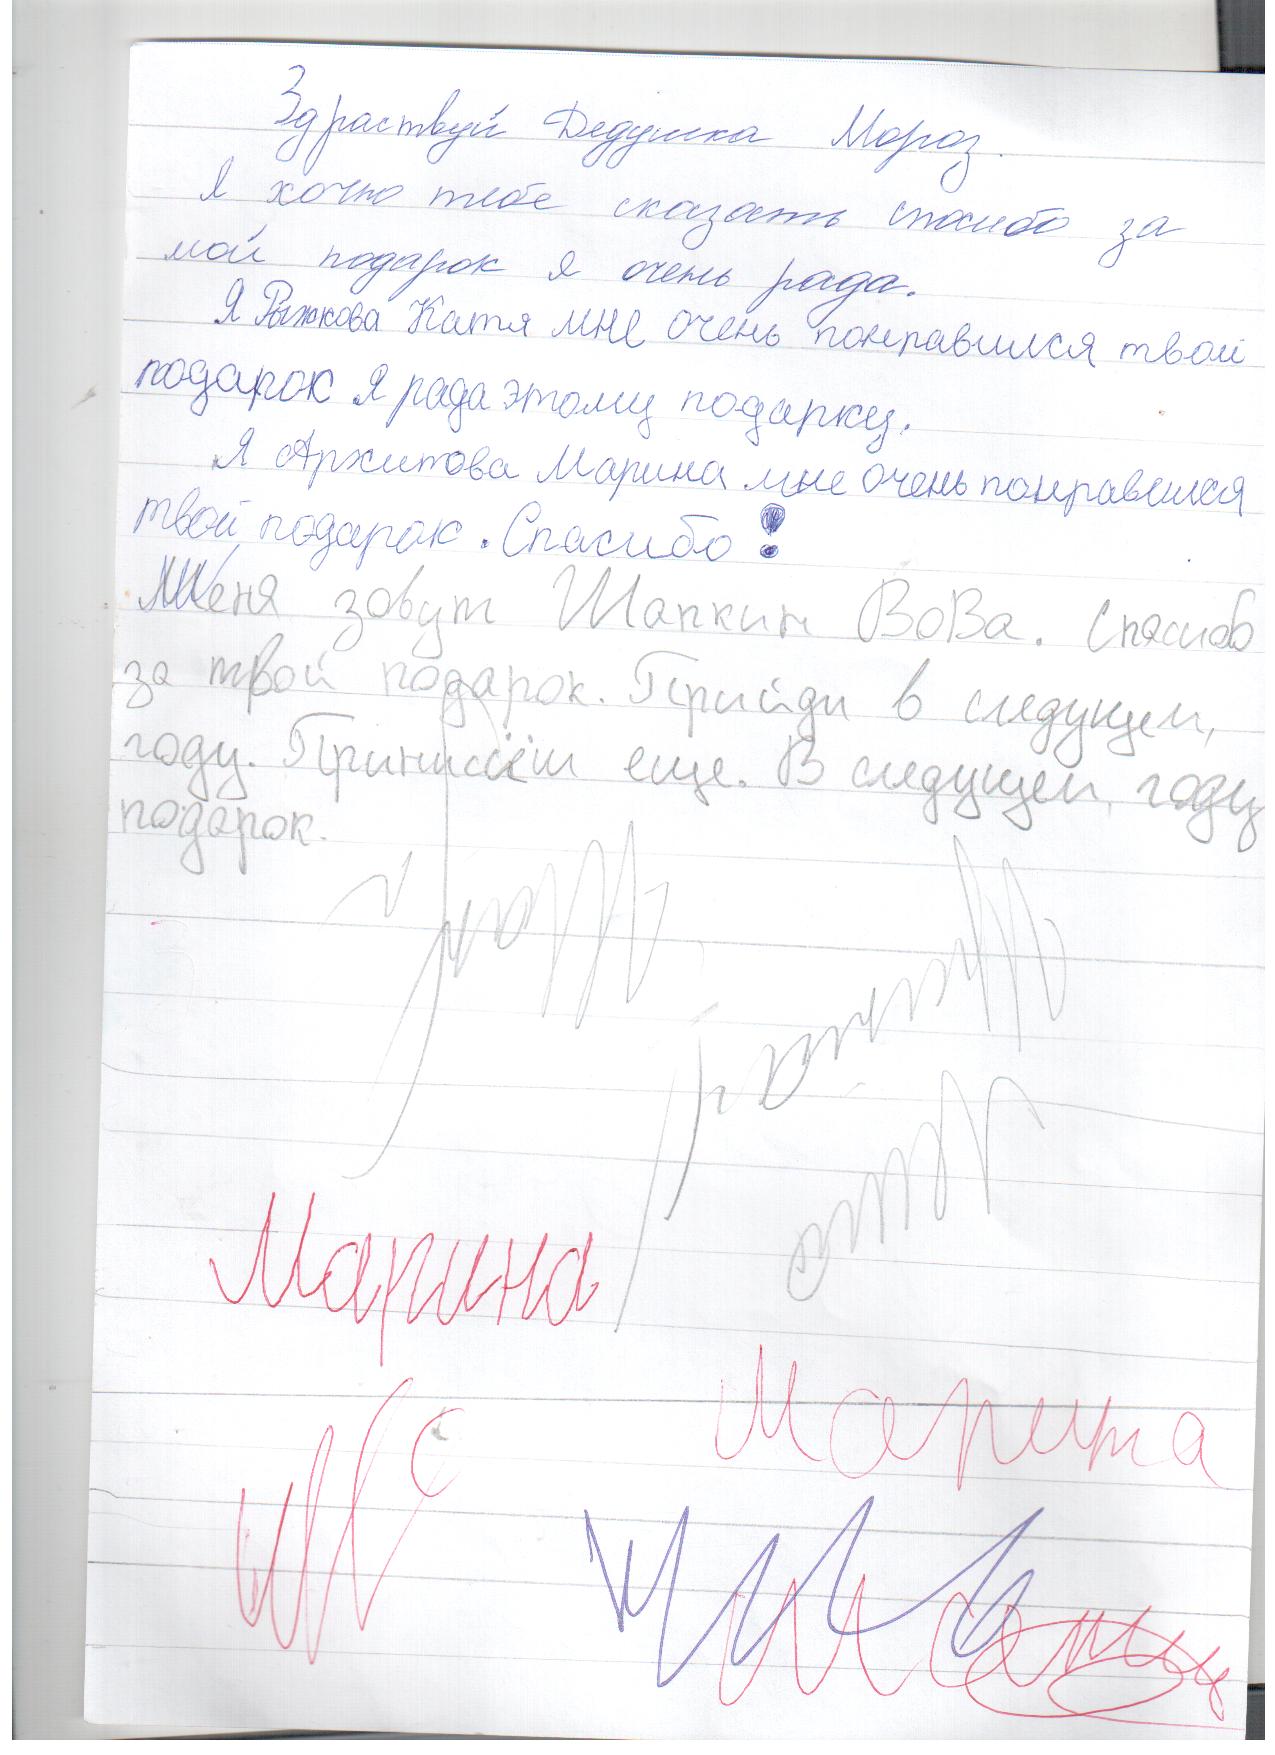 Здраствуй Дедушка Мороз.
Я хочю тебе сказать спасибо за
мой подарок я очень рада.
Я Рыжкова Катя мне очень понравился твой
подарок я рада этому подарку.
Я Архитова Марина мне очень понравился
твой подарок. Спасибо!
Меня зовут Шапкин Вова. Спасибо
за твой подарок. Прийди в следущем,
году. Принисёш еще. В следущем, году
подарок.
Марина
Марина